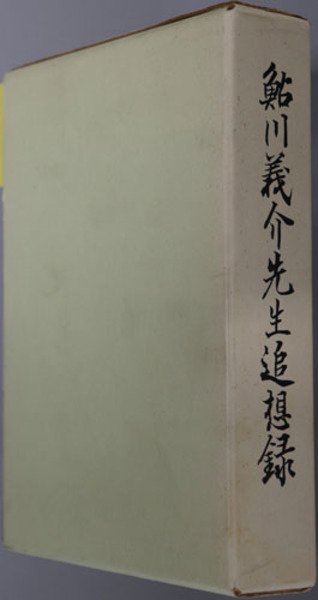 鮎川義介先生追想録